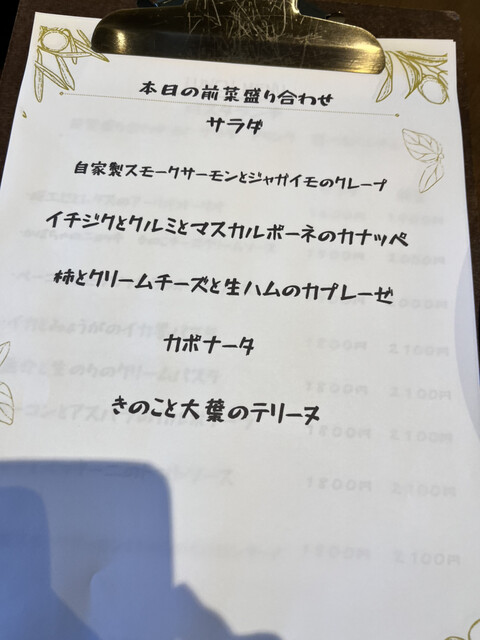 本日の前菜盛り合わせ
サラダ
自家製スモークサーモンとジャガイモのクレープ
イチジクとクルミとマスカルポーネのカナッペ
柿とクリームチーズと生ハムのカプレーゼ
カポナータ
きのこと大葉のテリーヌ